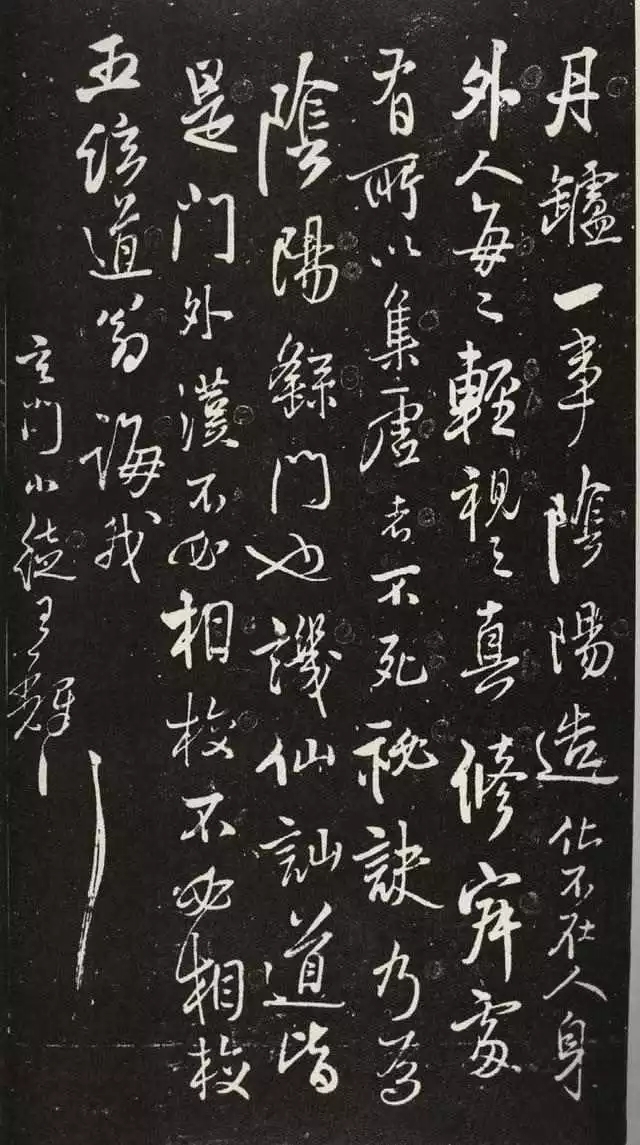 丹鑪一事陰陽造化不在人身
外人每々輕視之真修處
有所以集虛者不死秘訣乃為
陰陽門也譏仙訕道皆
是門外漢不必相校不必相校
五道翁誨我
玄門小徒王輝